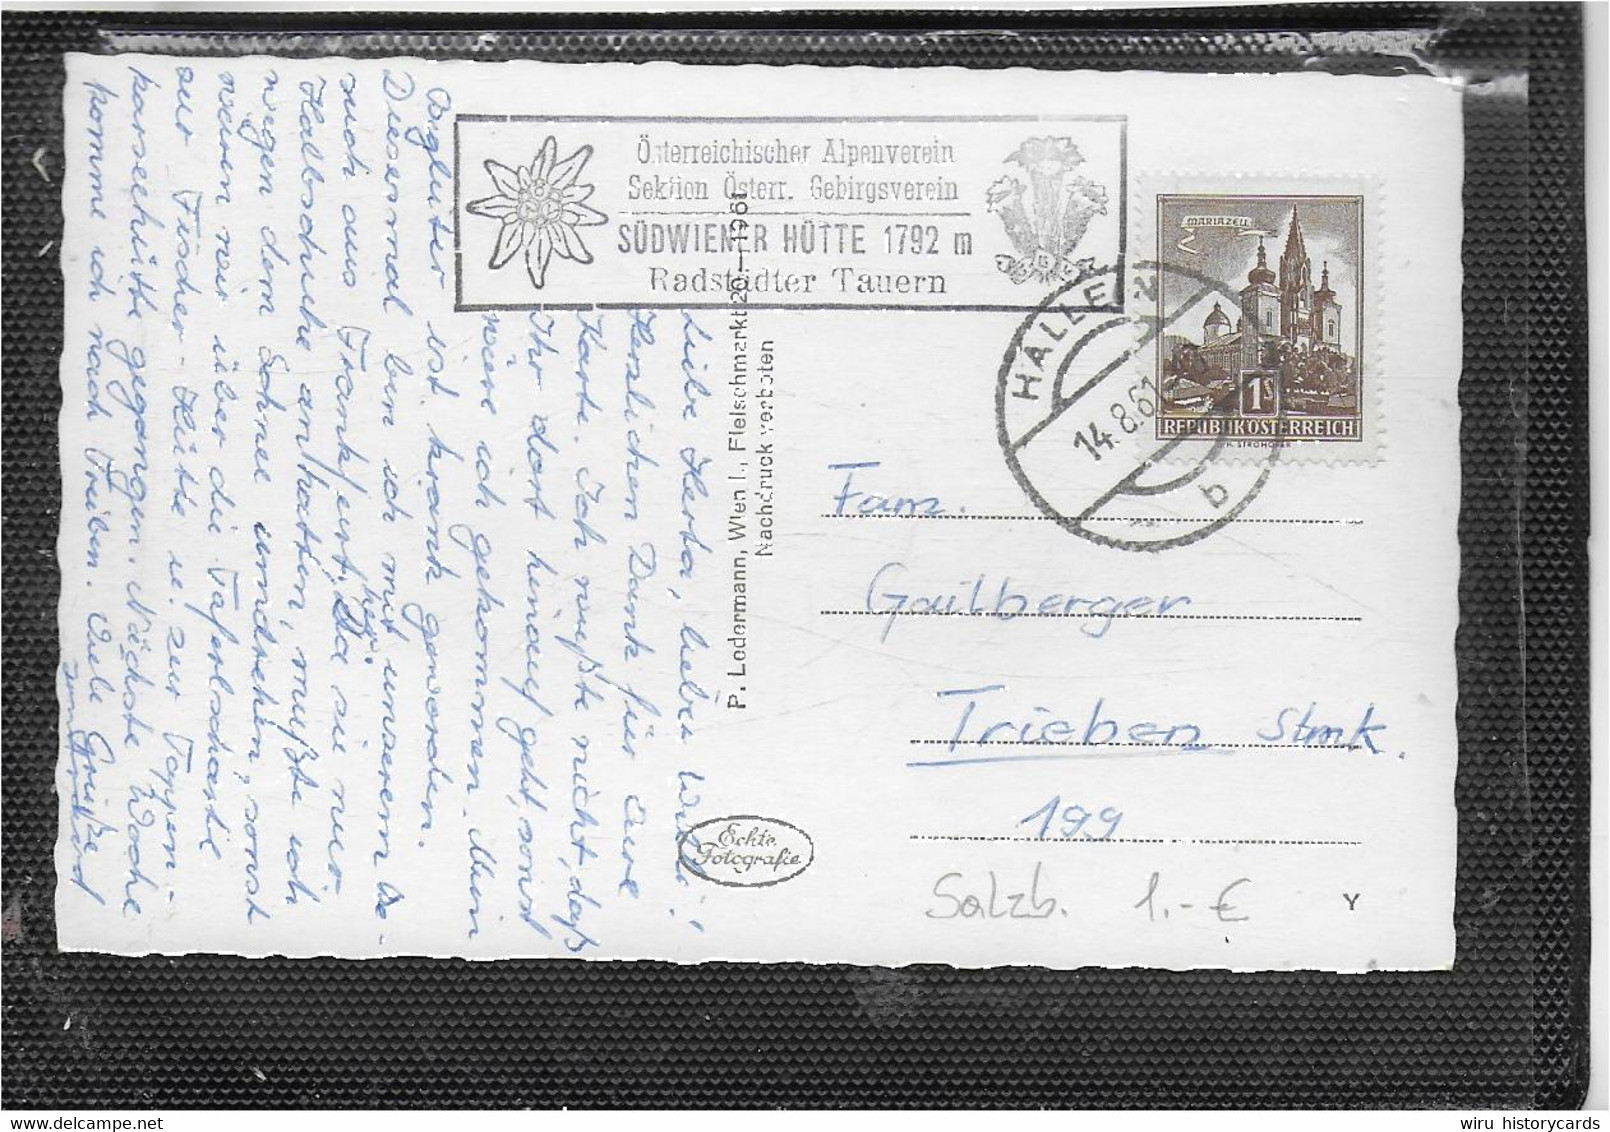 Österreichischer Alpenverein
Sektion Österr. Gebirgsverein
SÜDWIENER HÜTTE 1792 m
Radstädter Tauern
HALLEIN
14.8.61
b
MARIAZELL
1S
REPUBLIK ÖSTERREICH
H. STROHOFER
Liebe Herta, lieber Willi!
Herzlichen Dank für eure
Karte. Ich wußte nicht, daß
Ihr dort hinauf geht, sonst
wäre ich gekommen. Mein
Begleiter ist krank geworden.
Diesesmal bin ich mit unserem Be-
such aus Frankfurt her. Da sie nur
Halbschuhe anhatten, mußte ich
wegen dem Schnee umdrehen, sonst
wären wir über die Taferlscharte
zur Fischer-Hütte u. zur Toppen-
karseehütte gegangen. Nächste Woche
komme ich nach Trieben. Viele Grüße
P. Ledermann, Wien I., Fleischmarkt 20—1961
Nachdruck verboten
Echte
Fotografie
Fam.
Gailberger
Trieben Stmk.
199
Salzb. 1.-€
Y
wiru historycards